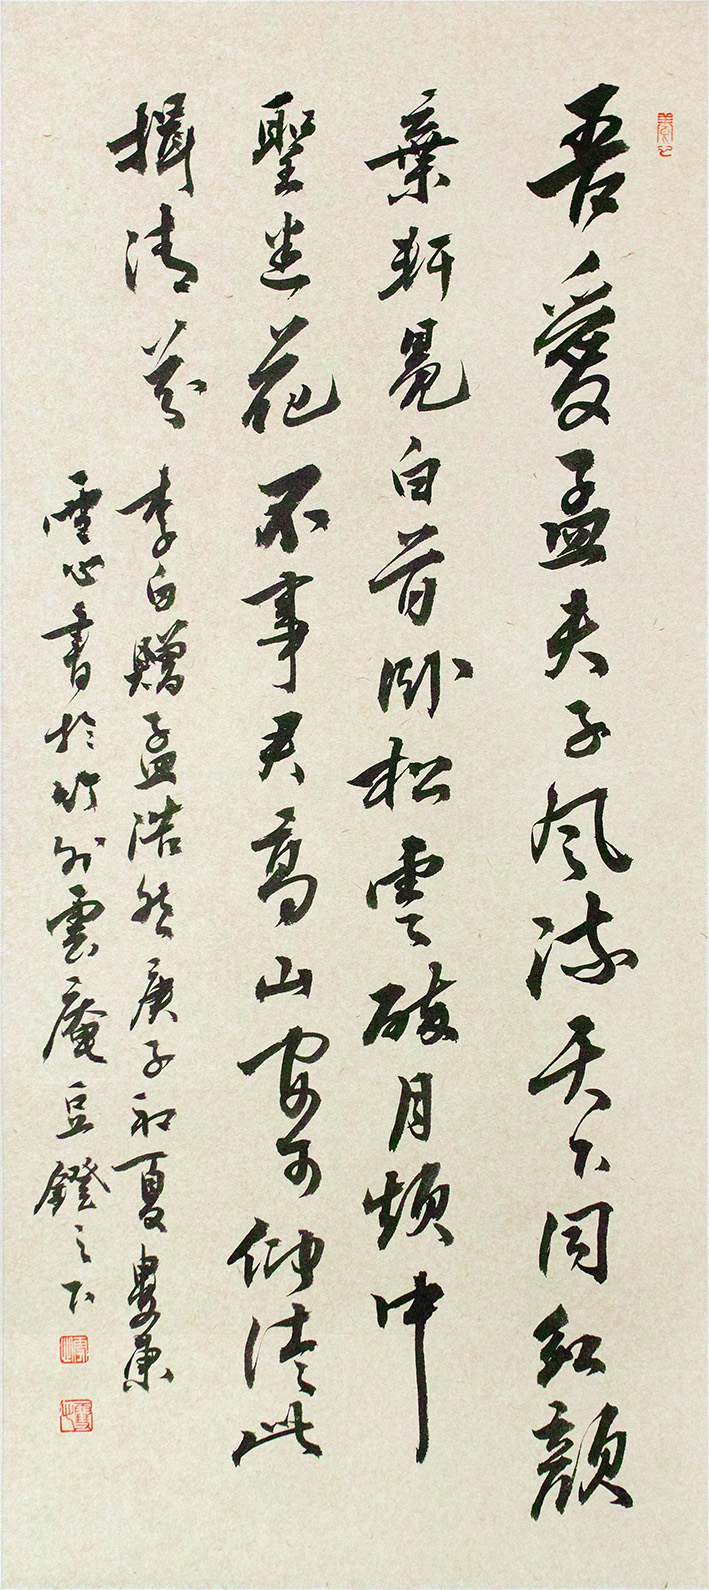 吾愛孟夫子風流天下聞紅顏
棄軒冕白首卧松雲醉月頻中
聖迷花不事君高山安可仰徒此
揖清芬 李白贈孟浩然庚子初夏婁東
雪心書於竹外雲庵豆鐙之下